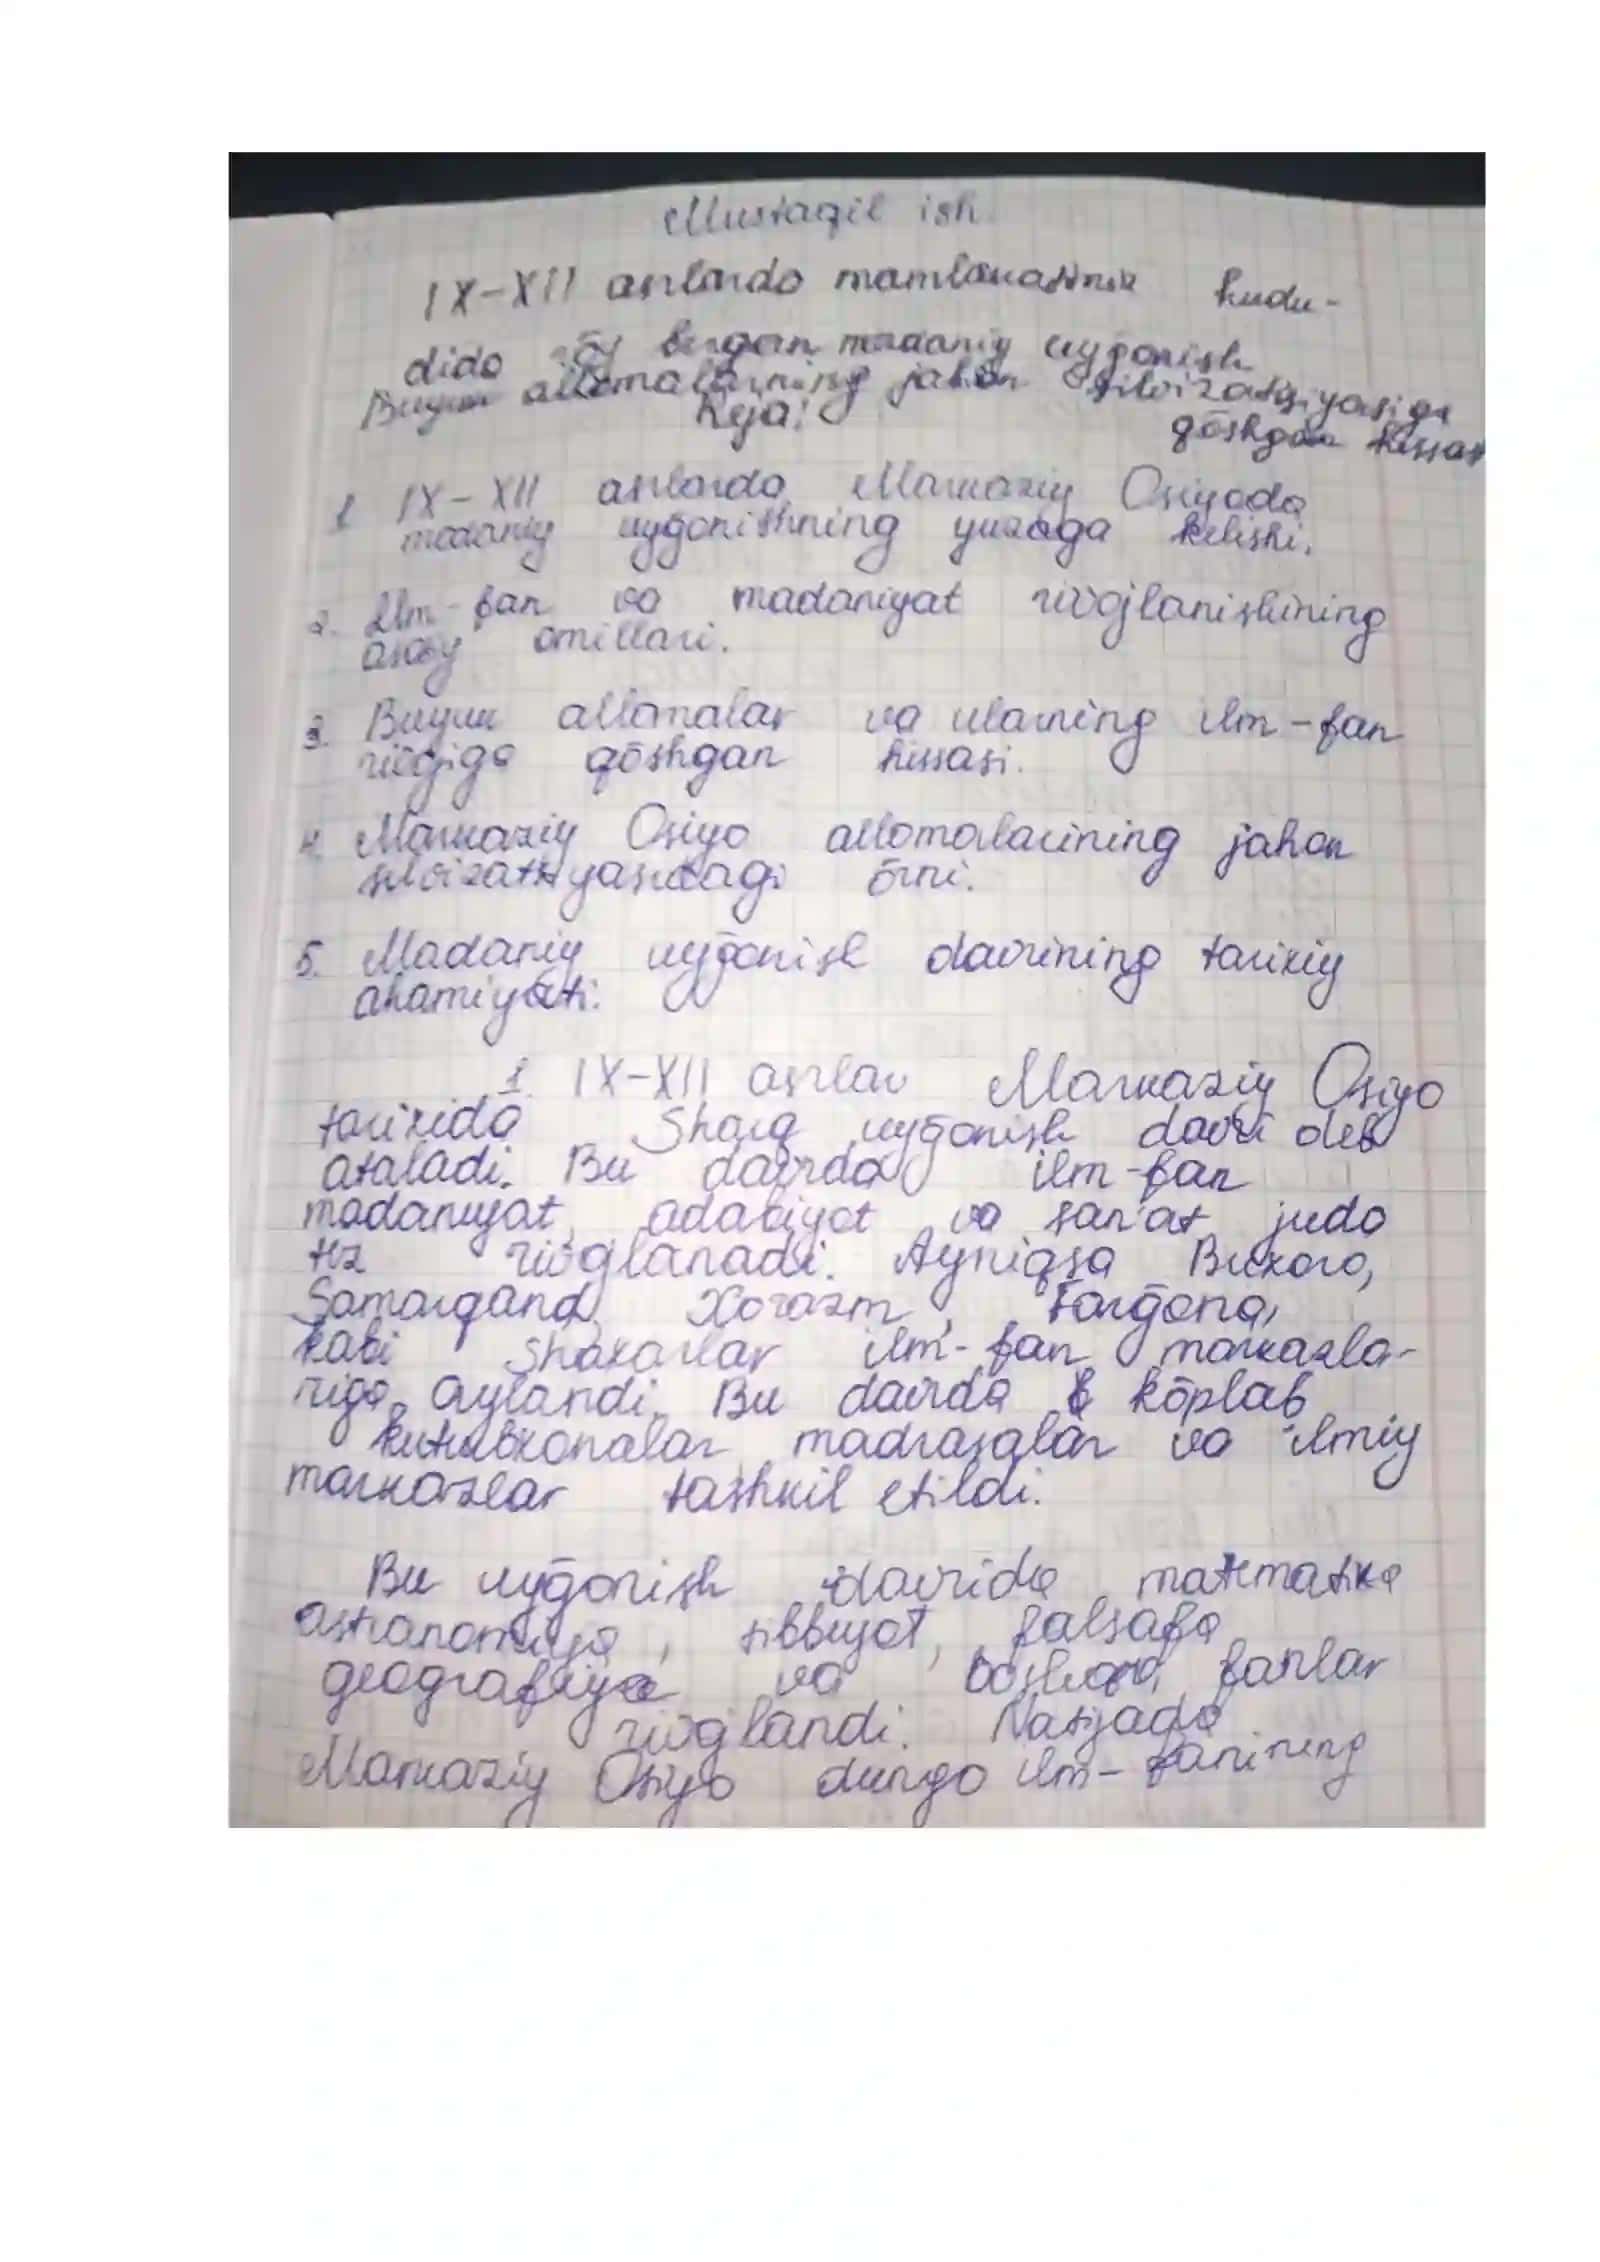 Mustaqil ish.
IX-XII asrlarda mamlakatimiz hudu-
dida rōy bergan madaniy uyḡonish
Buyuk allomalarning jahon sivilizatsiyasiga
Reja:
qōshgan hissasi
1 IX-XII asrlarda Markaziy Osiyoda
madaniy uyḡonishning yuzaga kelishi.
2. Ilm-fan va madaniyat rivojlanishining
asosiy omillari.
3. Buyuk allomalar va ularning ilm-fan
rivojiga qōshgan hissasi.
4. Markaziy Osiyo allomalarining jahon
sivilizatsiyasidagi ōrni.
5. Madaniy uyḡonish davrining tarixiy
ahamiyati.
1. IX-XII asrlar Markaziy Osiyo
tarixida Sharq uyḡonish davri deb
ataladi. Bu davrda ilm-fan
madaniyat, adabiyot va san'at juda
tez rivojlanadi. Ayniqsa Buxoro,
Samarqand, Xorazm, Farḡona,
kabi shaxarlar ilm-fan markazla-
riga aylandi. Bu davrda kōplab
kutubxonalar madrasalar va ilmiy
markazlar tashkil etildi.
Bu uyḡonish davrida matematika
astranomiya, tibbiyot, falsafa
geografiya va boshqa fanlar
rivojlandi. Natijada
Markaziy Osiyo dunyo ilm-fanining